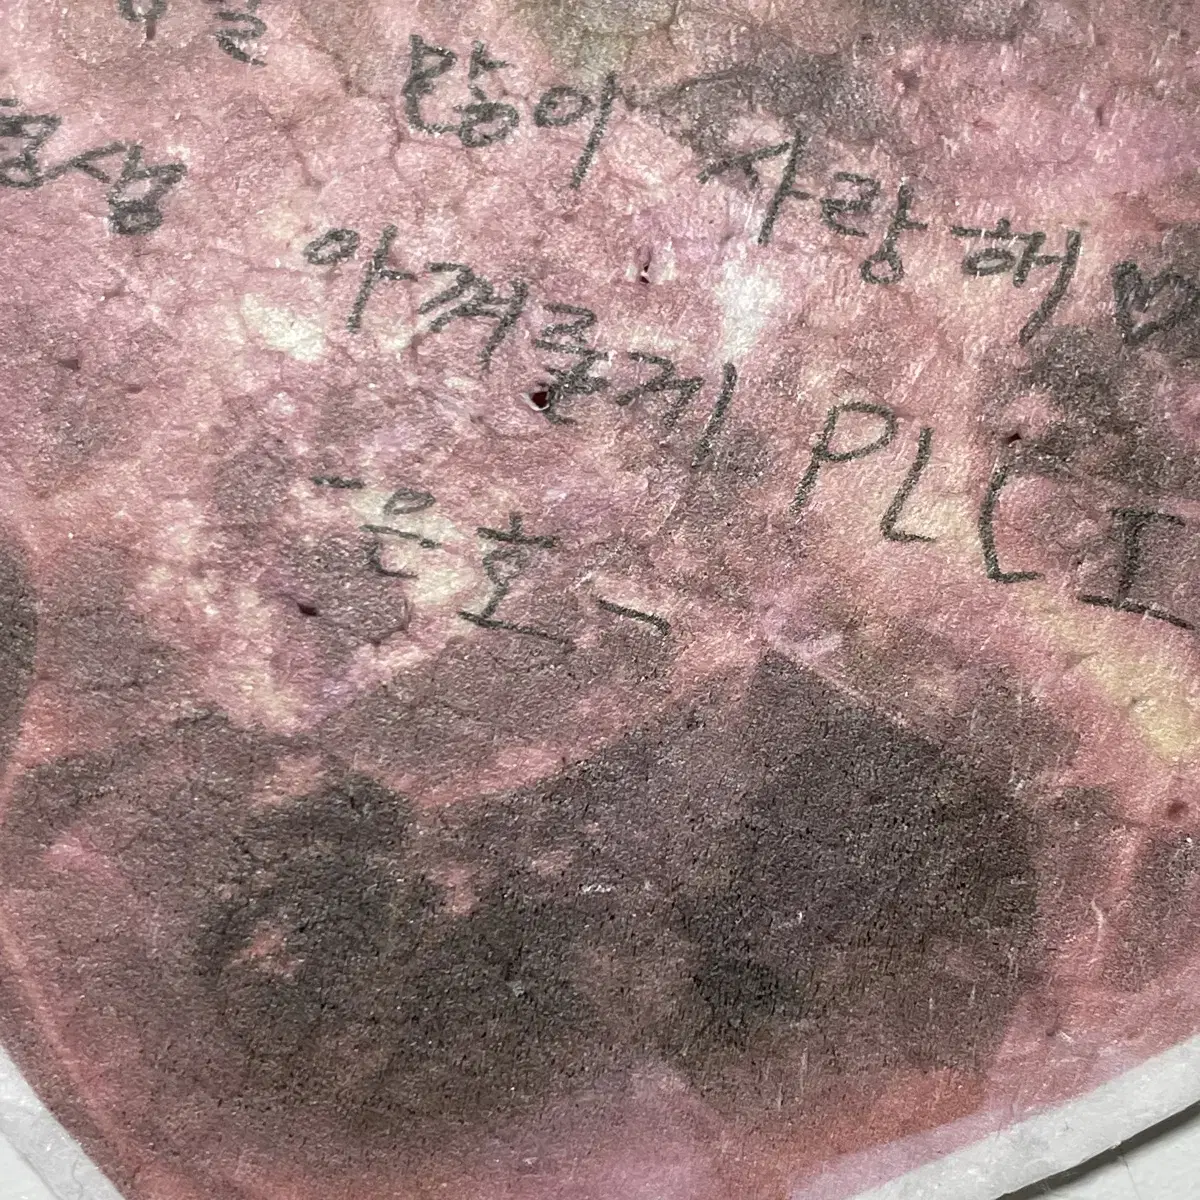 많이 사랑해 ♡
항상
아껴줄게
PLLI
- 은호 -